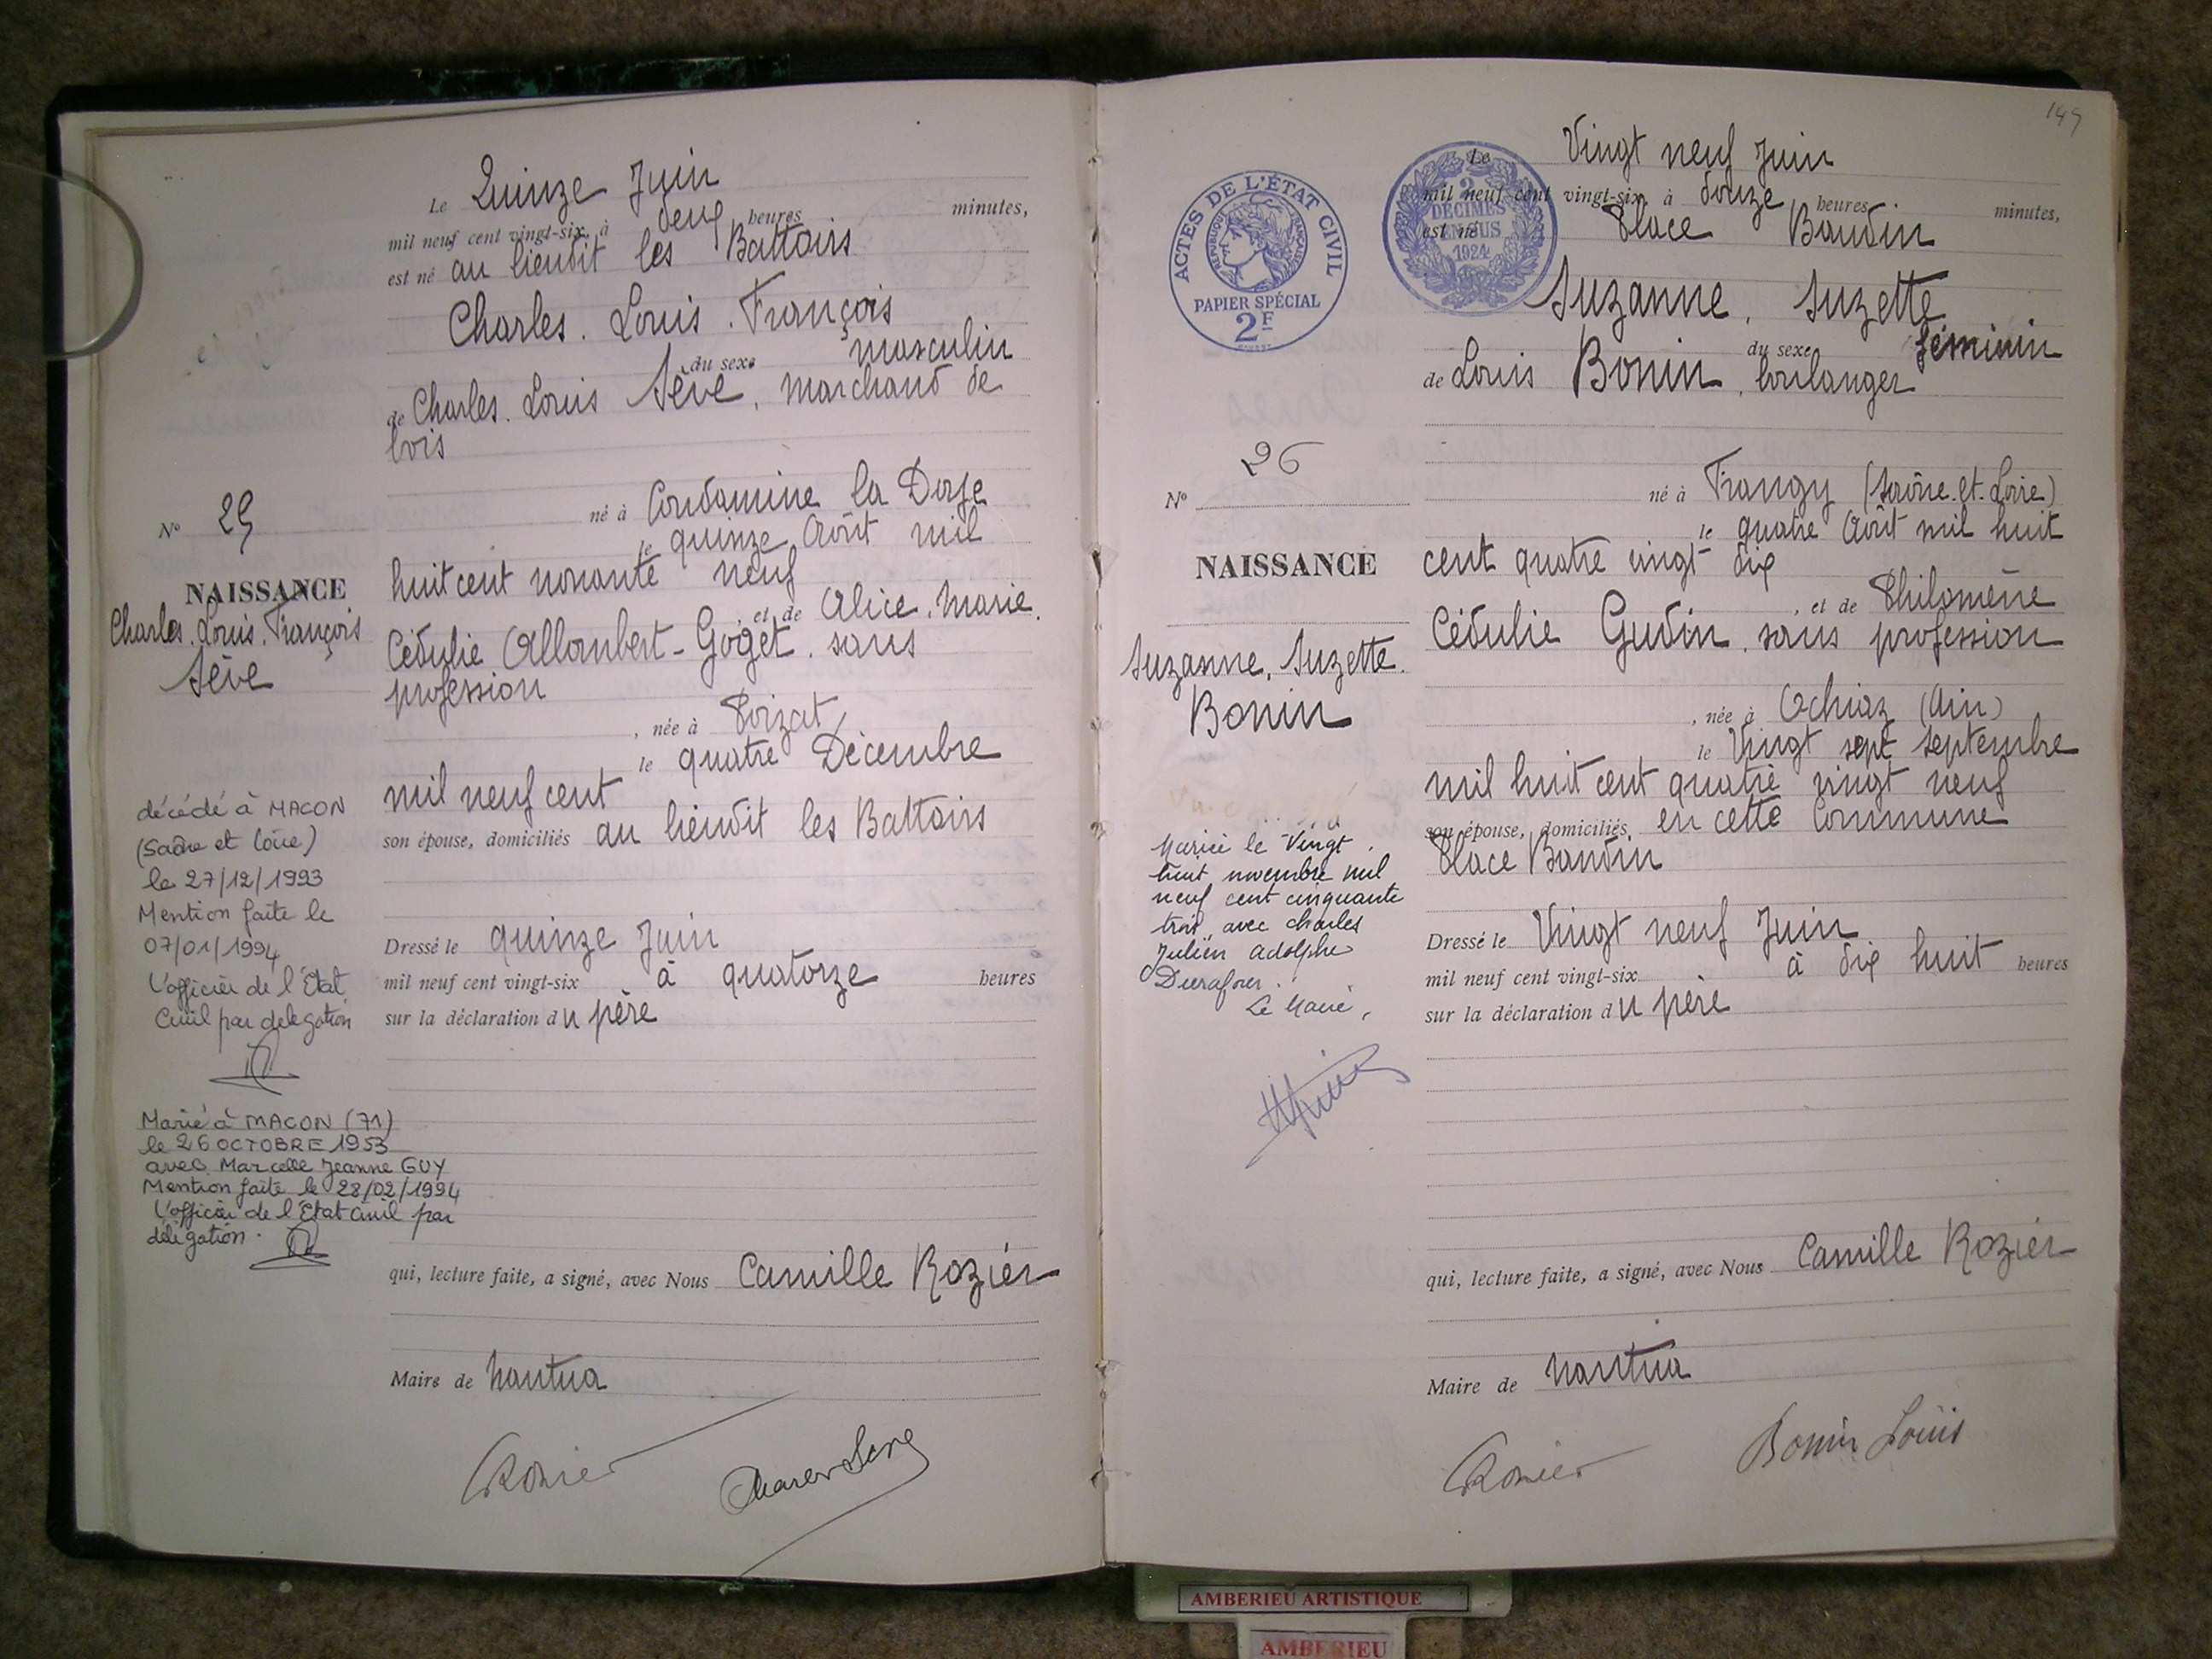 Le Quinze Juin
mil neuf cent vingt-six, à deux heures minutes,
est né au lieudit les Battoirs
Charles. Louis. François
du sexe masculin
de Charles. Louis Sève, marchand de
bois
né à Condamine la Doye
le quinze Août mil
huit cent nonante neuf
et de Alice. Marie.
Cédulie Allombert-Goget. sans
profession
, née à Poizat
le quatre Décembre
mil neuf cent
son épouse, domiciliés au lieudit les Battoirs
Dressé le quinze Juin
mil neuf cent vingt-six à quatorze heures
sur la déclaration du père
qui, lecture faite, a signé, avec Nous Camille Rozier
Maire de Nantua
CRozier
Sève
No 25
NAISSANCE
Charles. Louis. François
Sève
décédé à MACON
(Saône et Loire)
le 27/12/1993
Mention faite le
07/01/1994
L'officier de l'Etat
Civil par delegation
Marié à MACON (71)
le 26 OCTOBRE 1953
avec Marcelle Jeanne GUY
Mention faite le 28/02/1994
L'officier de l'Etat Civil par
délégation.
149
ACTES DE L'ÉTAT CIVIL
RÉPUBLIQUE FRANÇAISE
PAPIER SPÉCIAL
2F
2
DÉCIMES
EN SUS
1924
Le Vingt neuf Juin
mil neuf cent vingt-six, à douze heures minutes,
est né Place Baudin
Suzanne, Suzette
du sexe féminin
de Louis Bonin, boulanger
né à Frangy (Saône.et.Loire)
le quatre Août mil huit
cent quatre vingt dix
, et de Philomène
Cédulie Gudin, sans profession
, née à Ochiaz (Ain)
le Vingt sept septembre
mil huit cent quatre vingt neuf
son épouse, domiciliés en cette Commune
Place Baudin
Dressé le Vingt neuf Juin
mil neuf cent vingt-six à dix huit heures
sur la déclaration du père
qui, lecture faite, a signé, avec Nous Camille Rozier
Maire de Nantua
CRozier
Bonin Louis
No 26
NAISSANCE
Suzanne, Suzette.
Bonin
Mariée le Vingt
huit novembre mil
neuf cent cinquante
trois, avec Charles
Julien Adolphe
Durafour.
Le Maire,
AMBERIEU ARTISTIQUE
AMBERIEU